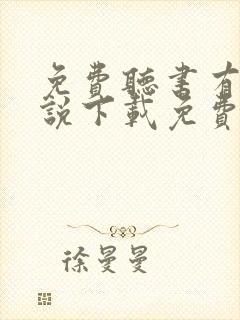 免費聽書有
說下載免費
徐曼曼